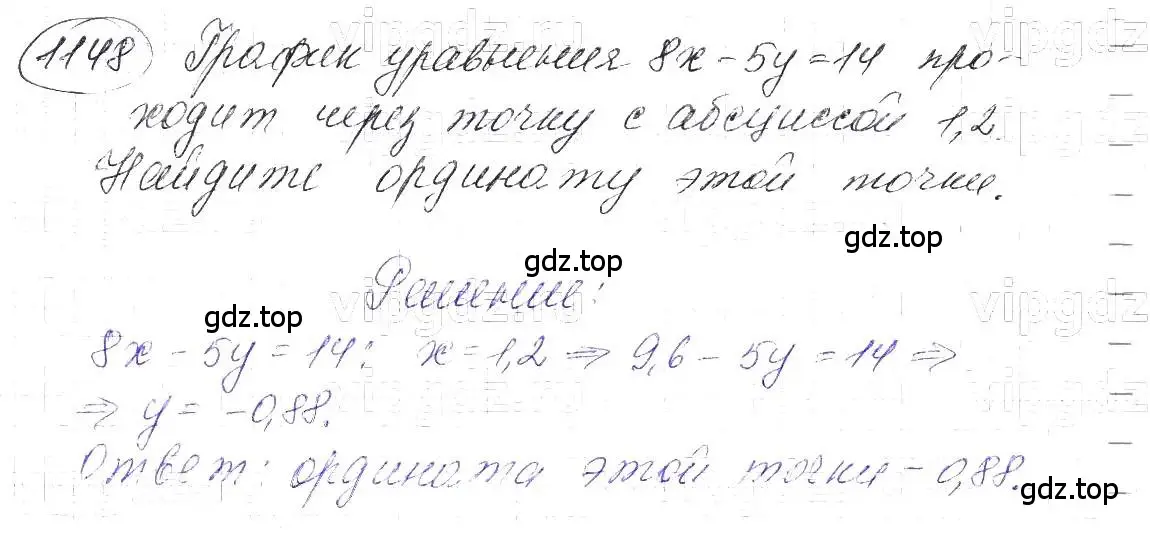 1148 График уравнения 8x - 5y = 14 про-
ходит через точку с абсциссой 1,2.
Найдите ординату этой точки.
Решение:
8x - 5y = 14; x = 1,2 ⇒ 9,6 - 5y = 14 ⇒
⇒ y = -0,88.
Ответ: ордината этой точки -0,88.
gdz.top
gdz.top
gdz.top
gdz.top
vipgdz.ru
vipgdz
vipgdz.ru
vipgdz